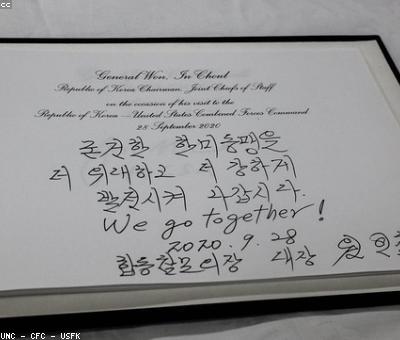 cc
General Won, In Choul
Republic of Korea Chairman, Joint Chiefs of Staff
on the occasion of his visit to the
Republic of Korea — United States Combined Forces Command
28 September 2020
굳건한 한미동맹을
더 위대하고 더 강하게
발전시켜 나갑시다.
We go together!
2020. 9. 28
합동참모의장 대장 원 인철
UNC - CFC - USFK